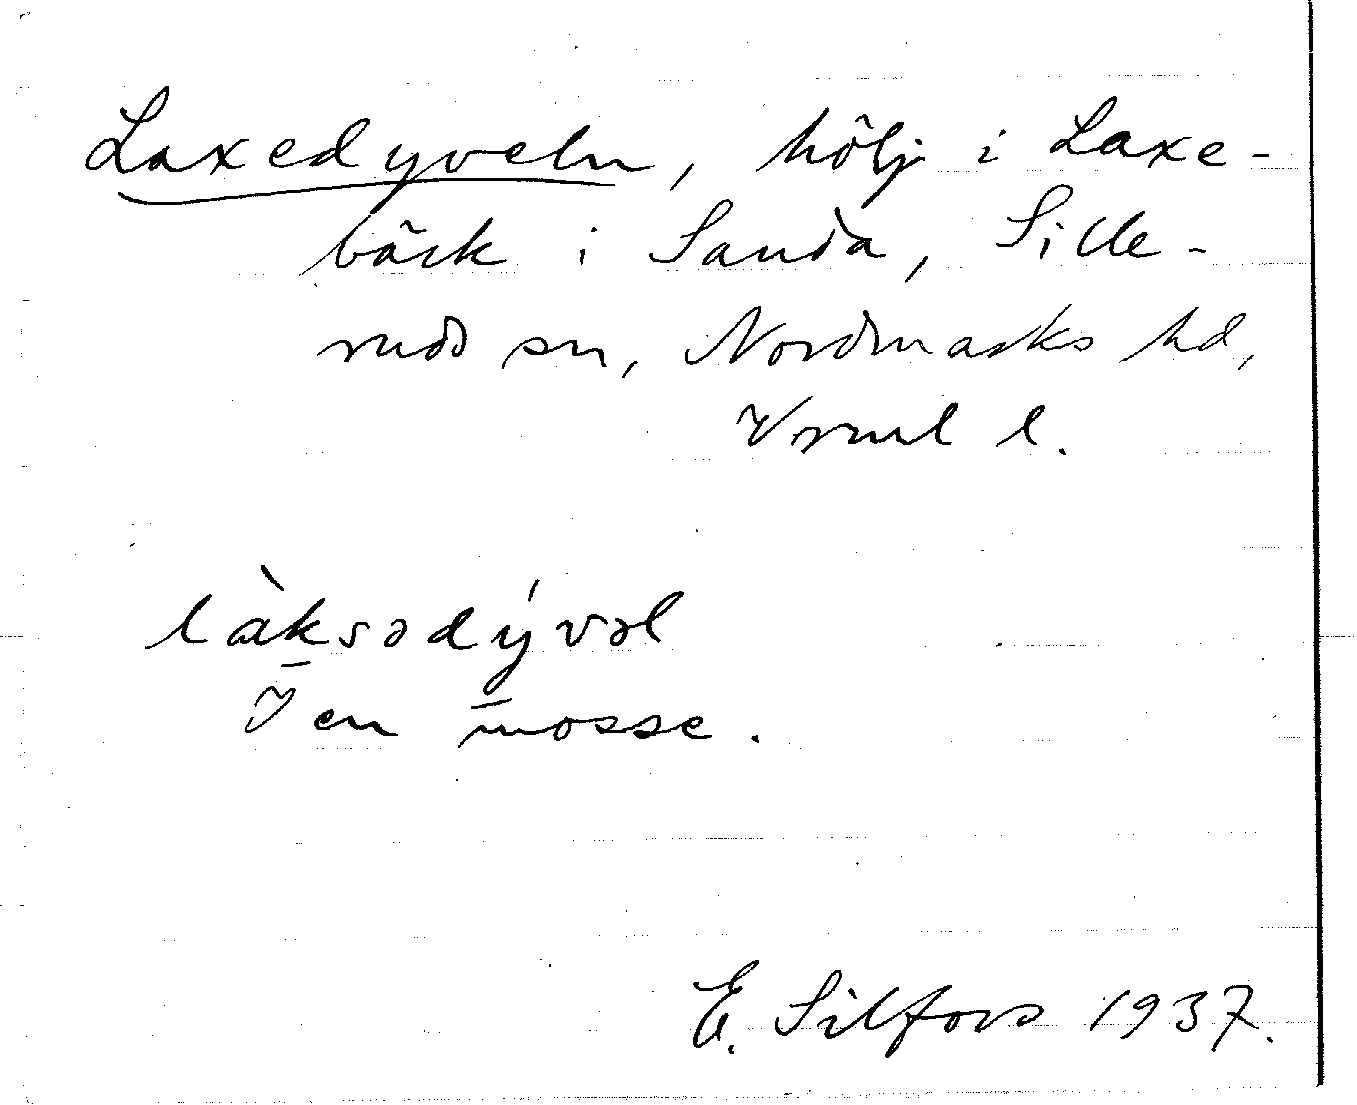 Laxedyveln, hölj i Laxe-
bäck i Sanda, Sille-
rudo sn, Nordmarks hd,
Vrml l.
làksədývəl
I en mosse.
E. Silfors 1937.